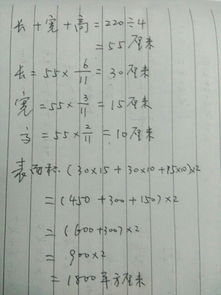 长+宽+高=220÷4
=55厘米
长=55×6/11=30厘米
宽=55×3/11=15厘米
高=55×2/11=10厘米
表面积:(30×15+30×10+15×10)×2
=(450+300+150)×2
=(600+300)×2
=900×2
=1800平方厘米